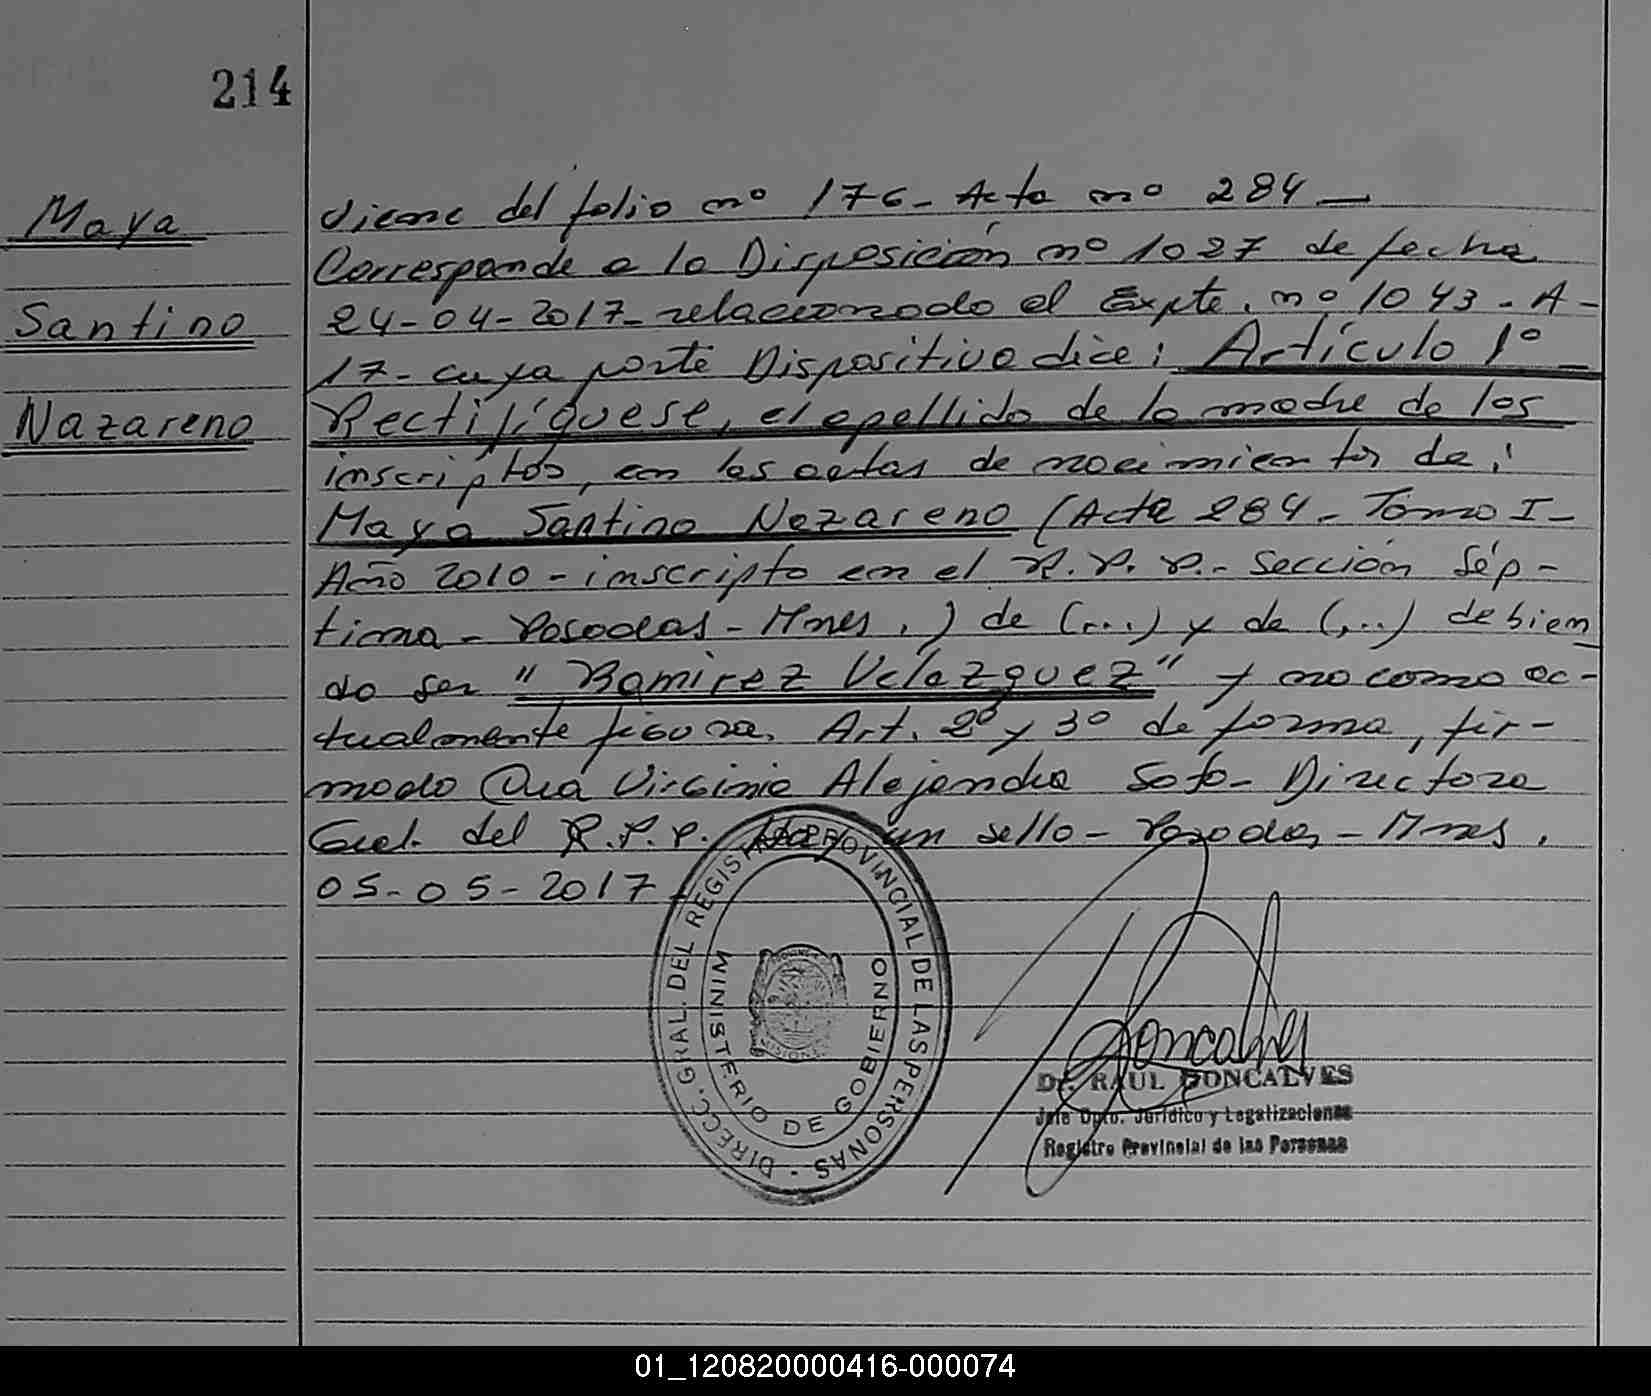 214
Maya
Santino
Nazareno
Viene del folio nº 176- Acta nº 284 —
Corresponde a la Disposición nº 1027 de fecha
24-04-2017- relacionado el Expte. nº 1043-A-
17- cuya parte Dispositiva dice: Artículo 1º
Rectifíquese, el apellido de la madre de los
inscriptos, en las actas de nacimientos de:
Maya Santino Nazareno (Acta 284- Tomo I-
Año 2010-inscripto en el R.P.P.- Sección Sép-
tima- Posadas- Mnes.) de (...) y de (...) debien
do ser "Ramirez Velazquez" y no como ac-
tualmente figura. Art. 2º y 3º de forma, fir-
mado Virginia Alejandra Soto- Directora
Gral. del R.P.P. Hay un sello- Posadas- Mnes.
05-05-2017-
DIRECC. GRAL. DEL REGISTRO PROVINCIAL DE LAS PERSONAS -
MINISTERIO DE GOBIERNO
PROVINCIA
MISIONES
Goncalves
Dr. RAUL GONCALVES
Jefe Dpto. Jurídico y Legalizaciones
Registro Provincial de las Personas
01_120820000416-000074